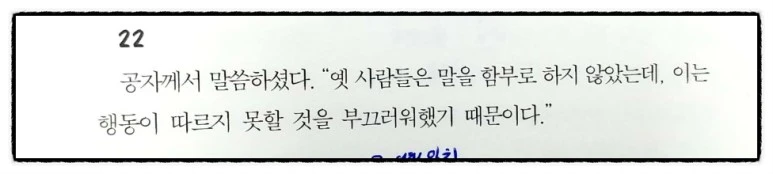 22
공자께서 말씀하셨다. “옛 사람들은 말을 함부로 하지 않았는데, 이는
행동이 따르지 못할 것을 부끄러워했기 때문이다.”